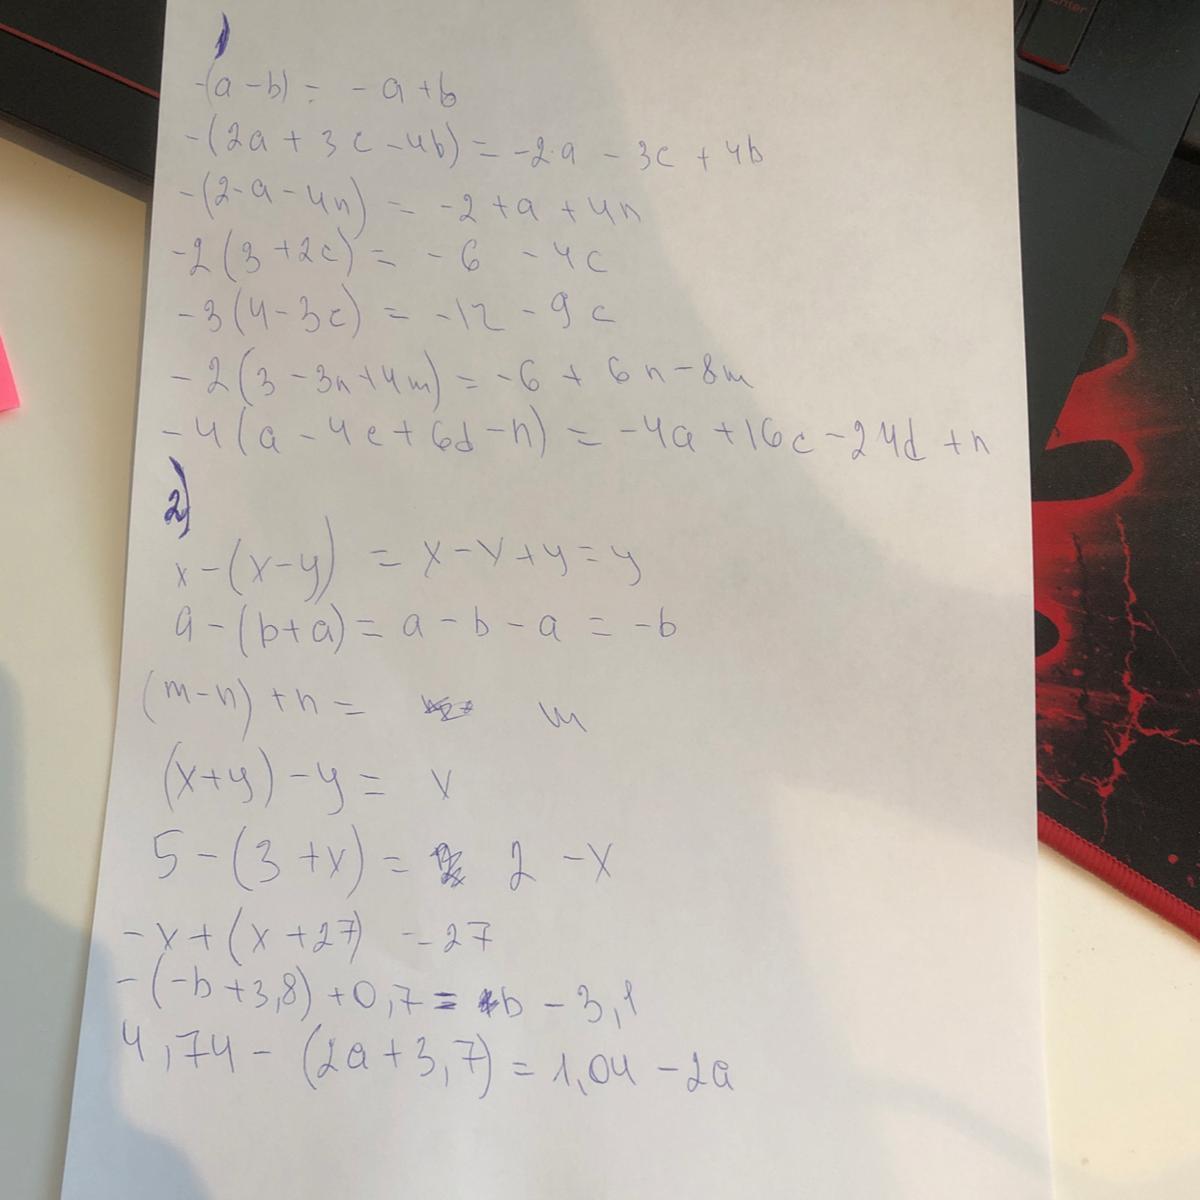 Enter
1)
-(a-b) = -a+b
-(2a+3c-4b) = -2a - 3c + 4b
-(2-a-4n) = -2+a+4n
-2(3+2c) = -6 -4c
-3(4-3c) = -12 -9c
-2(3-3n+4m) = -6 + 6n-8m
-4(a-4c+6d-n) = -4a+16c-24d+n
2)
x-(x-y) = x-x+y=y
a-(b+a) = a-b-a = -b
(m-n)+n= m
(x+y)-y= x
5-(3+x)= 2-x
-x+(x+27) =27
-(-b+3,8)+0,7= b-3,1
4,74-(2a+3,7)=1,04-2a